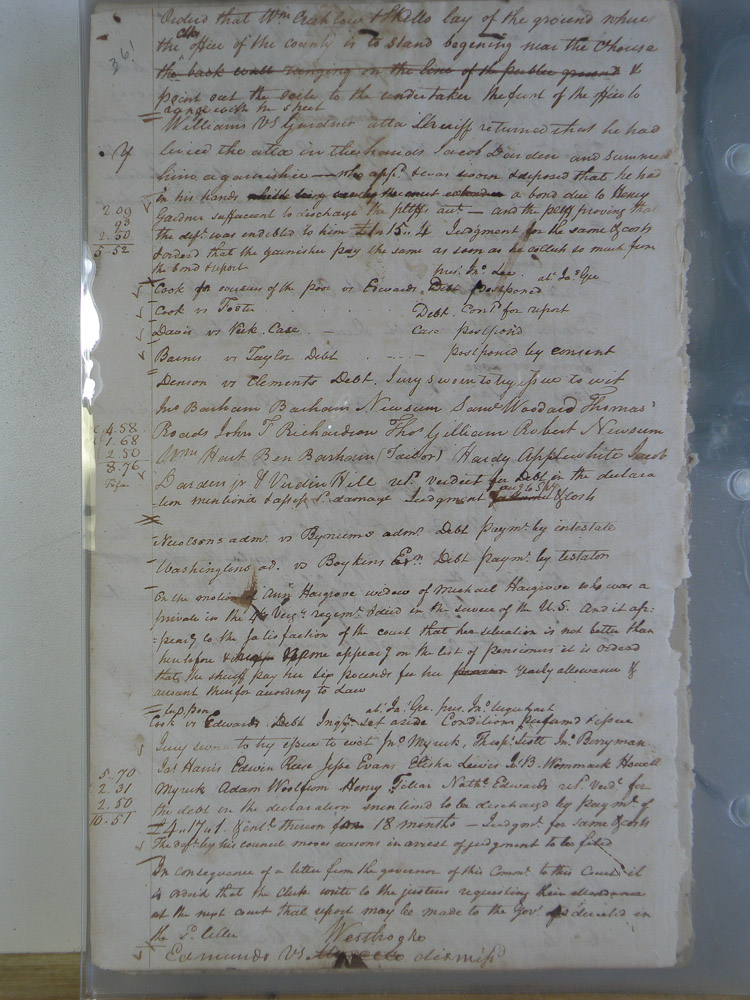 361
Orderd that Wm Crahlow & Shello lay of the ground where
the Clk office of the county is to stand begening near the Chouse
the back wall ranging on the line of the publee ground &
point out the scite to the undertaker the frunt of the office to
range with the street
Williams VS Gardner atta Sheriff returned that he had
leived the atta in the hands Jacob Darden and summons
him a garnishie — who appd & was sworn & deposed that he had
in his hands a bond due to Henry
Gardner suffecient to discharge the pltffs acct — and the pltff proving that
the deft was indebted to him £ 15.. 4 Judgment for the same & costs
& orderd that the garnishee pay the same as soon as he collects so much from
the bond & report
2.09
93
2.50
5.52
pres. Jno. Lee at. Jas Gee
Cook for overseers of the poor vs Edwards Debt postponed
Cook vs Foster Debt. Contd for report
Davis vs Kirk Case — Case postponed
Barnes vs Taylor Debt — postponed by consent
Denson vs Clements Debt. Jury sworn to try issue to wit
Jno Barham Barham Newsum Saml Woodard Thomas
Roads John T Richardson Thos Gilliam Robert Newsum
Wm Hart Ben Barham (Taclor) Hardy Applewhite Jacob
Darden jr & Verdin Hill retd verdict for Debt in the declara
tion mentiond & assess 1d. damage Judgment & costs
4.58
1.68
2.50
8.76
Newsoms admr vs Bynums admr Debt paymt by intestate
Washingtons ad. vs Boykins Exn Debt paymt by testator
On the motion of Ann Hargrove widow of Michael Hargrove who was a
private in the 4th Virga regemt & died in the servece of the U.S. And it ap:
:pearg to the satisfaction of the court that her situation is not better than
heretofore & appearg on the list of pensioners it is orderd
that the sheriff pay her six pounds for her yearly allowance &
account therefor according to Law
at. Jas Gee. pres. Jno. Urquhart
Cook vs Edwards Debt Inqy set aside Conditions perfomd & issue
Jury sworn to try issue to wit Jno Myrick, Thos Scott Jno Berryman
Jas Harris Edwin Reese Jesse Evans Elisha Lewis Jno B. Wommack Howell
Myrick Adam Woolfium Henry Feltar Nathl Edwards retd Verdt for
the debt in the declaration mentiond to be discharged by paymt of
£4..17..1. & intt. thereon from 18 months — Judgmt for same & costs
The deft by his council moves reasons in arrest of judgment to be filed
5.70
2.31
2.50
10.51
In consequence of a letter from the governor of this Commth to this Court it
is orderd that the Clerk write to the justices requesting their attendance
at the next court that report may be made to the Govr as directed in
the sd. letter
Westbrooke
Edmunds VS. dismissd